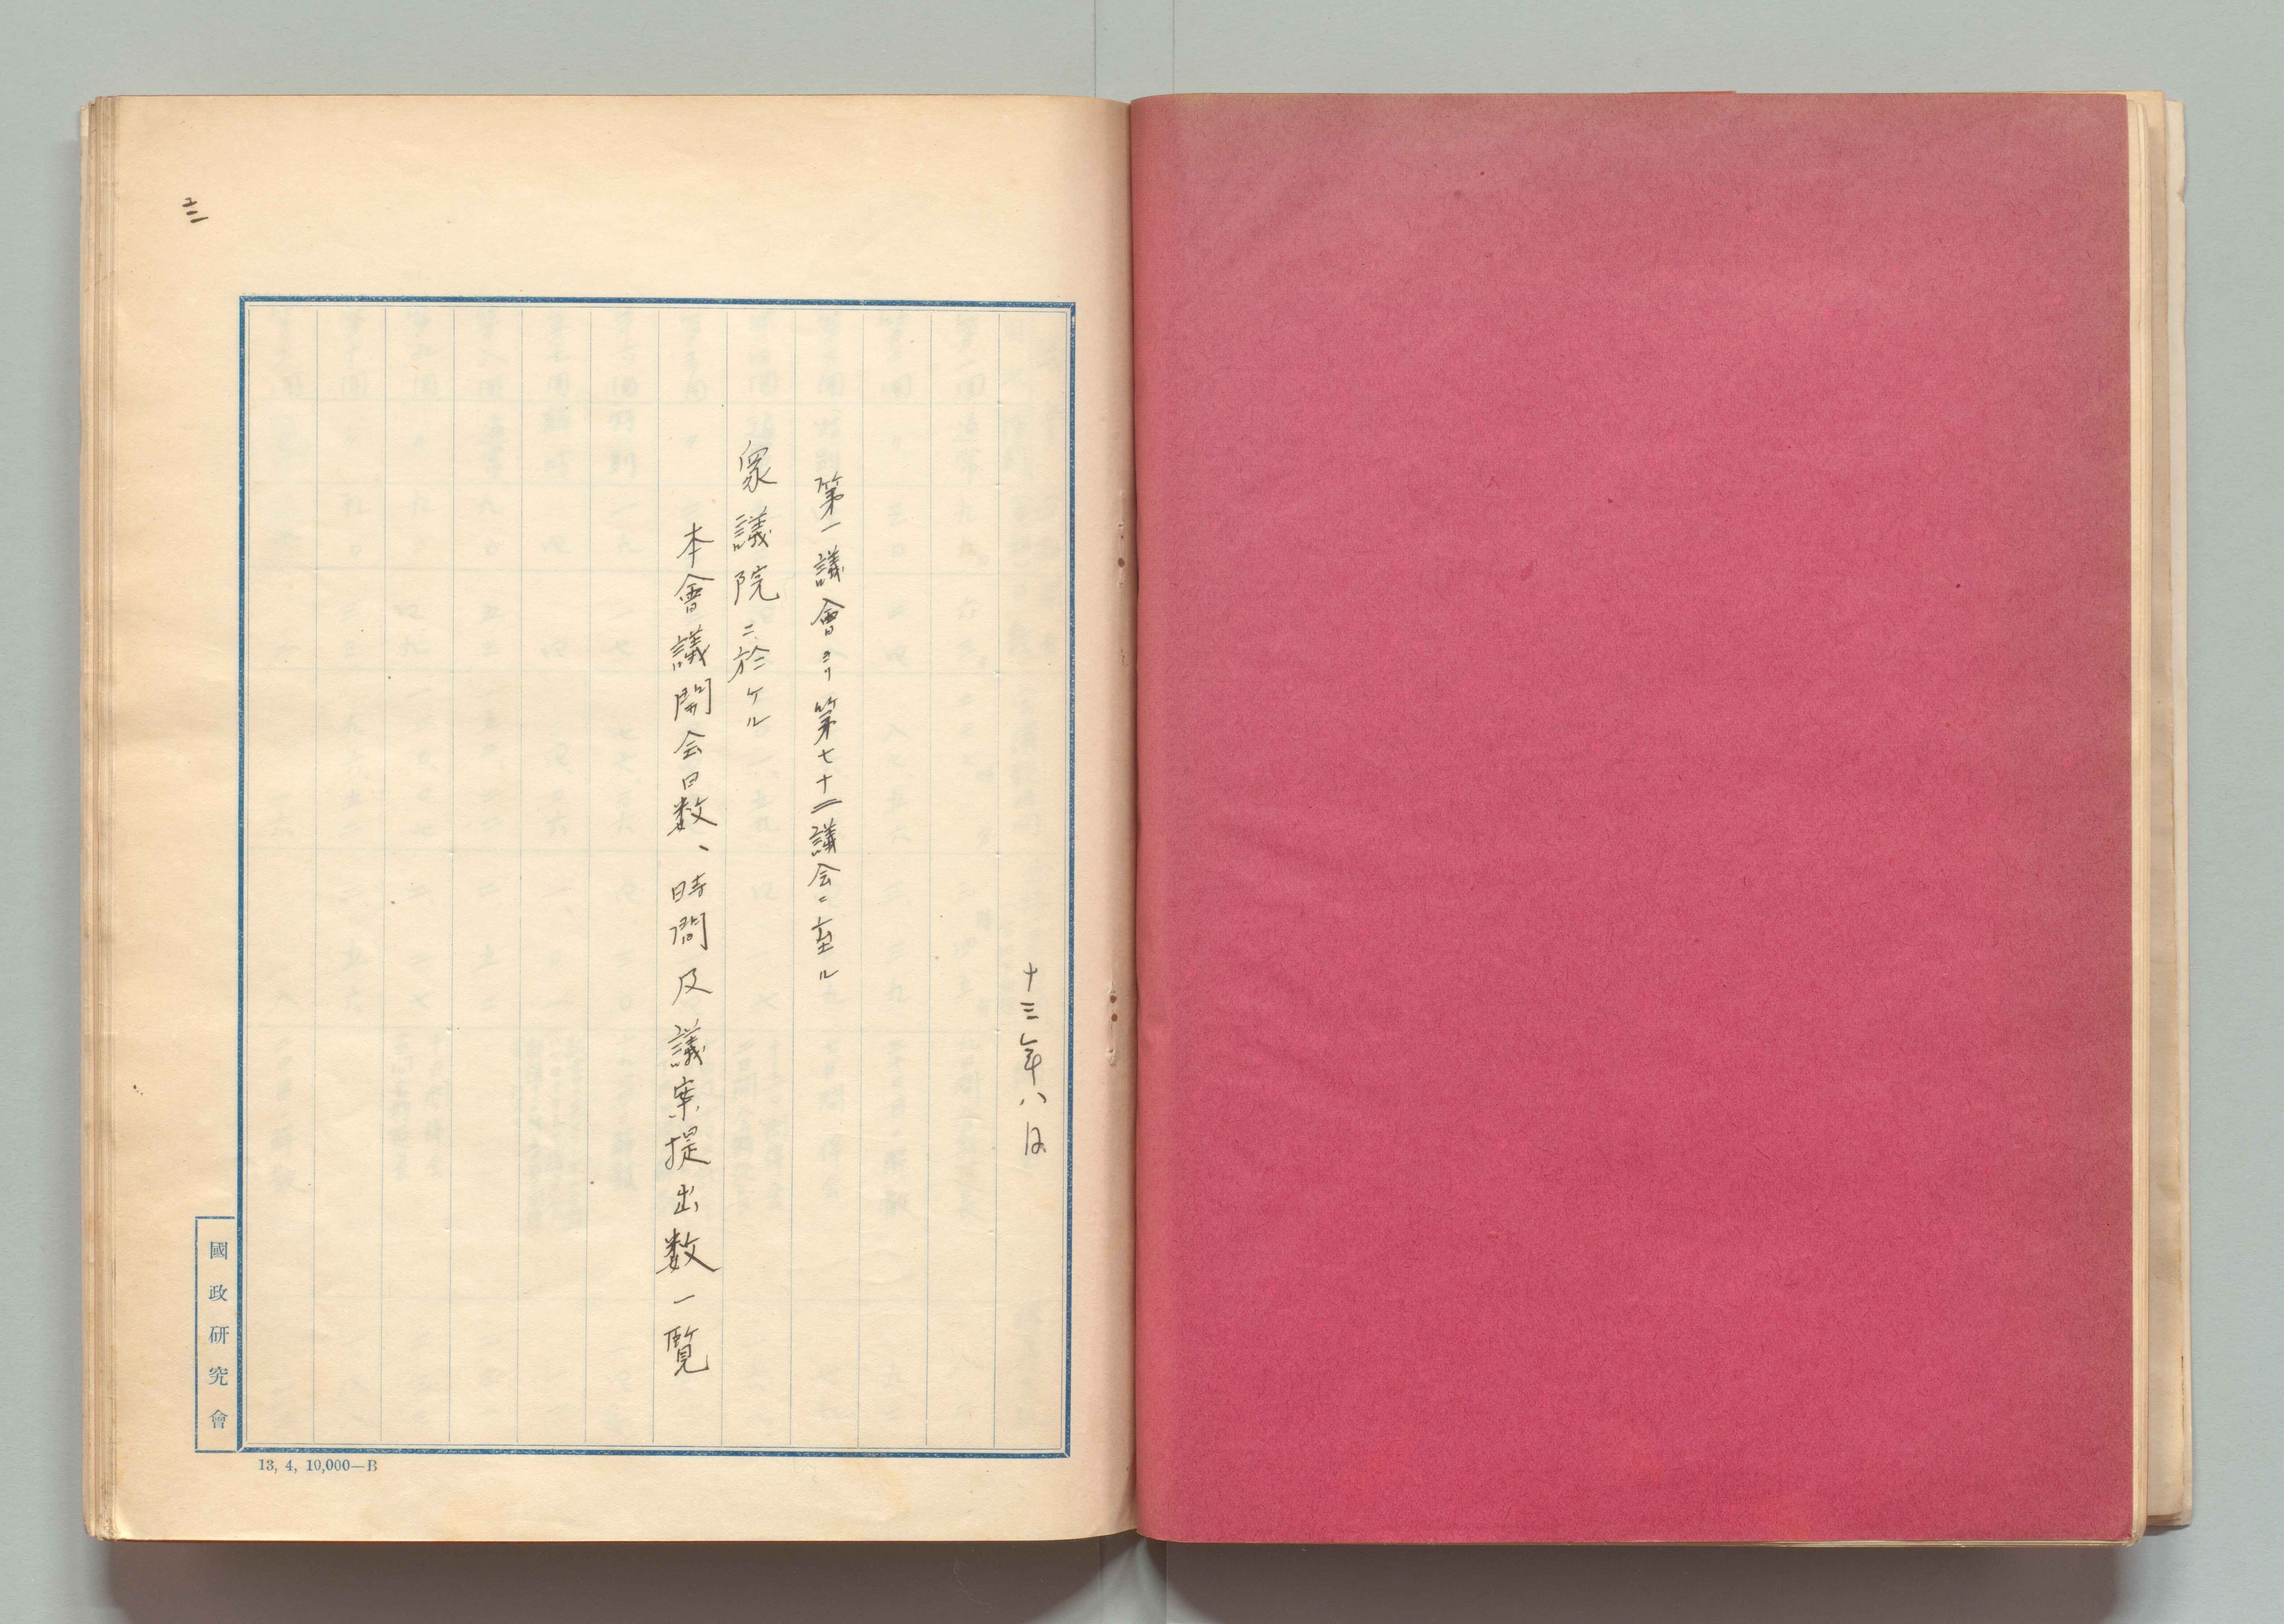 十三年八月
第一議會ヨリ第七十二議会ニ至ル
衆議院ニ於ケル
本會議開会日数、時間及議案提出数一覧
三
國政研究會
13, 4, 10,000—B